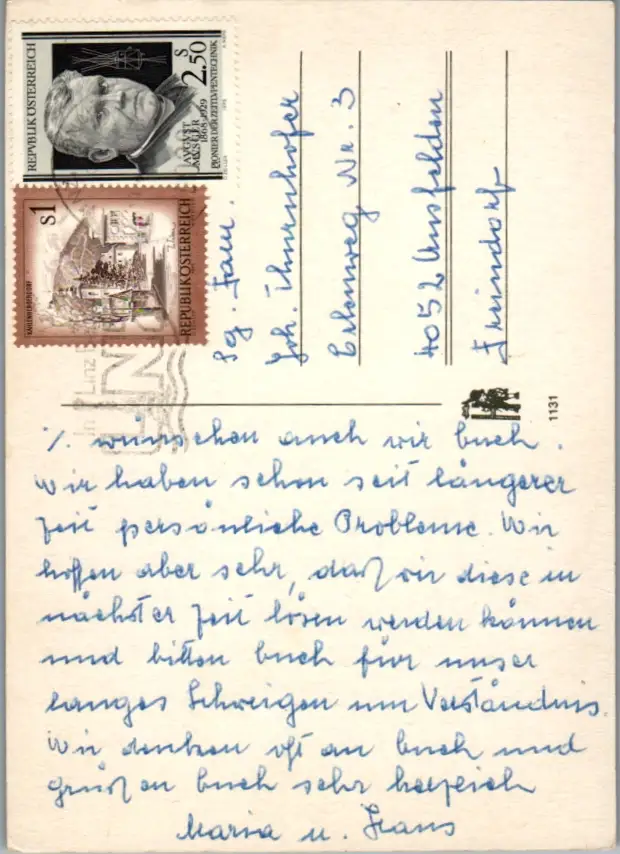 REPUBLIK ÖSTERREICH
S 2.50
AUGUST MUSGER
1868-1929
PIONIER DER ZEITLUPENTECHNIK
S1
REPUBLIK ÖSTERREICH
LINZ
Fam.
Joh.
Erlenweg Nr. 3
4052 Ansfelden
Freindorf
1131
./. wünschen auch wir Euch.
Wir haben schon seit längerer
Zeit persönliche Probleme. Wir
hoffen aber sehr, daß wir diese in
nächster Zeit lösen werden können
und bitten Euch für unser
langes Schweigen um Verständnis.
Wir denken oft an Euch und
grüßen Euch sehr herzlich
Maria u. Hans